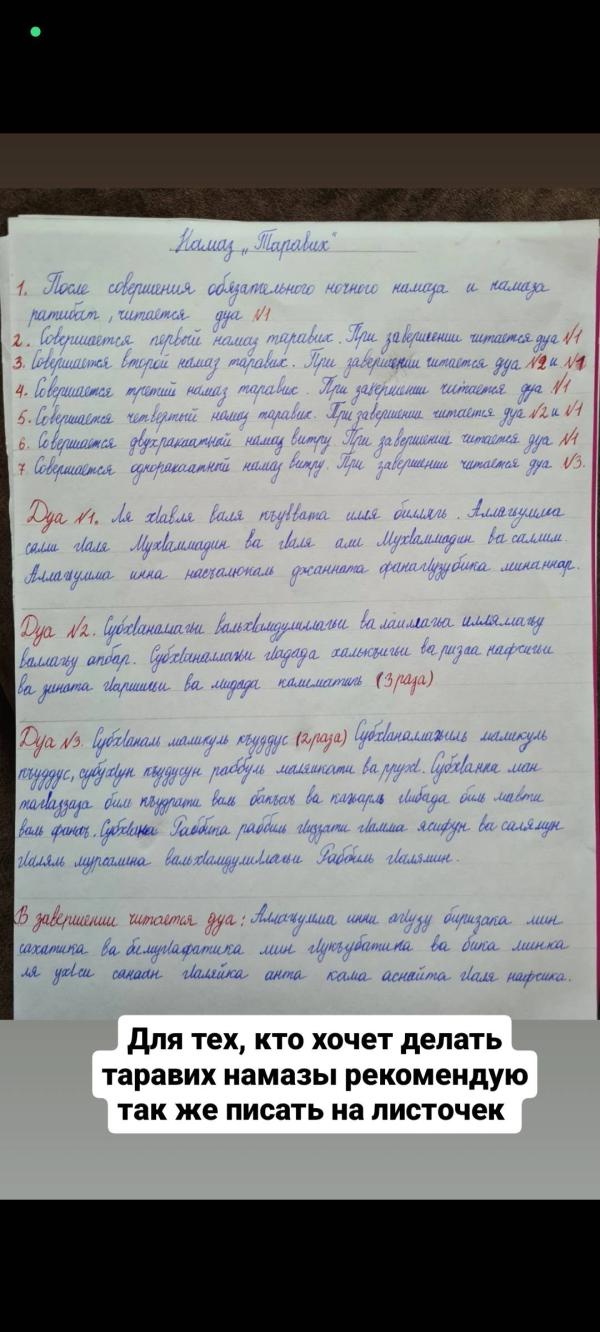 Намаз „Таравих"
1. После совершения обязательного ночного намаза и намаза
ратибат, читается дуа №1
2. Совершается первый намаз таравих. При завершении читается дуа №1
3. Совершается второй намаз таравих. При завершении читается дуа №2 и №1
4. Совершается третий намаз таравих. При завершении читается дуа №1
5. Совершается четвертый намаз таравих. При завершении читается дуа №2 и №1
6. Совершается двухракаатный намаз витру. При завершении читается дуа №1
7. Совершается одноракаатный намаз витру. При завершении читается дуа №3.
Дуа №1. Ля хIавля валя къуввата илля биллягь. Аллагьумма
салли гIаля МухIаммадин ва гIаля али МухIаммадин ва саллим.
Аллагьумма инна насъалюкаль джанната фанагIузубика минаннар.
Дуа №2. СубхIаналлагьи вальхIамдулиллагьи ва лаиллагьа иллялагьу
валлагьу акбар. СубхIаналлагьи гIадада халькъигьи ва ризаа нафсигьи
ва зината гIаршигьи ва мидада калиматигь (3 раза)
Дуа №3. СубхIаналь маликуль къуддус (2 раза) СубхIаналлагьиль маликуль
къуддус, суббухIун къуддусун раббуль маляикати ва ррухI. СубхIанка ман
тагIаззаза биль къудрати валь бакъаъ ва кагьарль гIибада биль мавти
валь фанаъ. СубхIана Раббика раббиль гIиззати гIамма ясифун ва салямун
гIаляль мурсалина вальхIамдулиллагьи Раббиль гIалямин.
В завершении читается дуа: Аллагьумма инни агIузу биризака мин
сахатика ва бимугIафатика мин гIукъубатика ва бика минка
ля ухIси санаан гIаляйка анта кама аснайта гIаля нафсика.
Для тех, кто хочет делать
таравих намазы рекомендую
так же писать на листочек